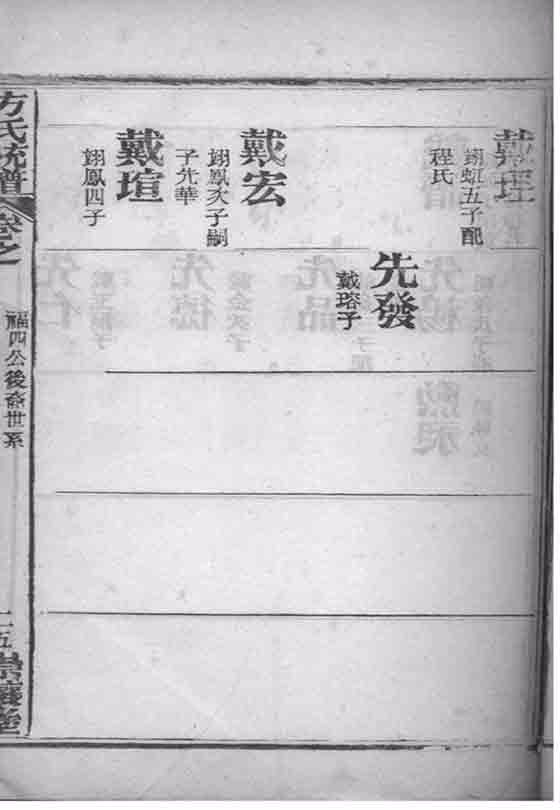 戴珵
翊虹五子配
程氏
先發
戴瑢子
戴宏
翊鳳次子嗣
子先華
戴瑄
翊鳳四子
方氏統譜
卷之
福四公後裔世系
五